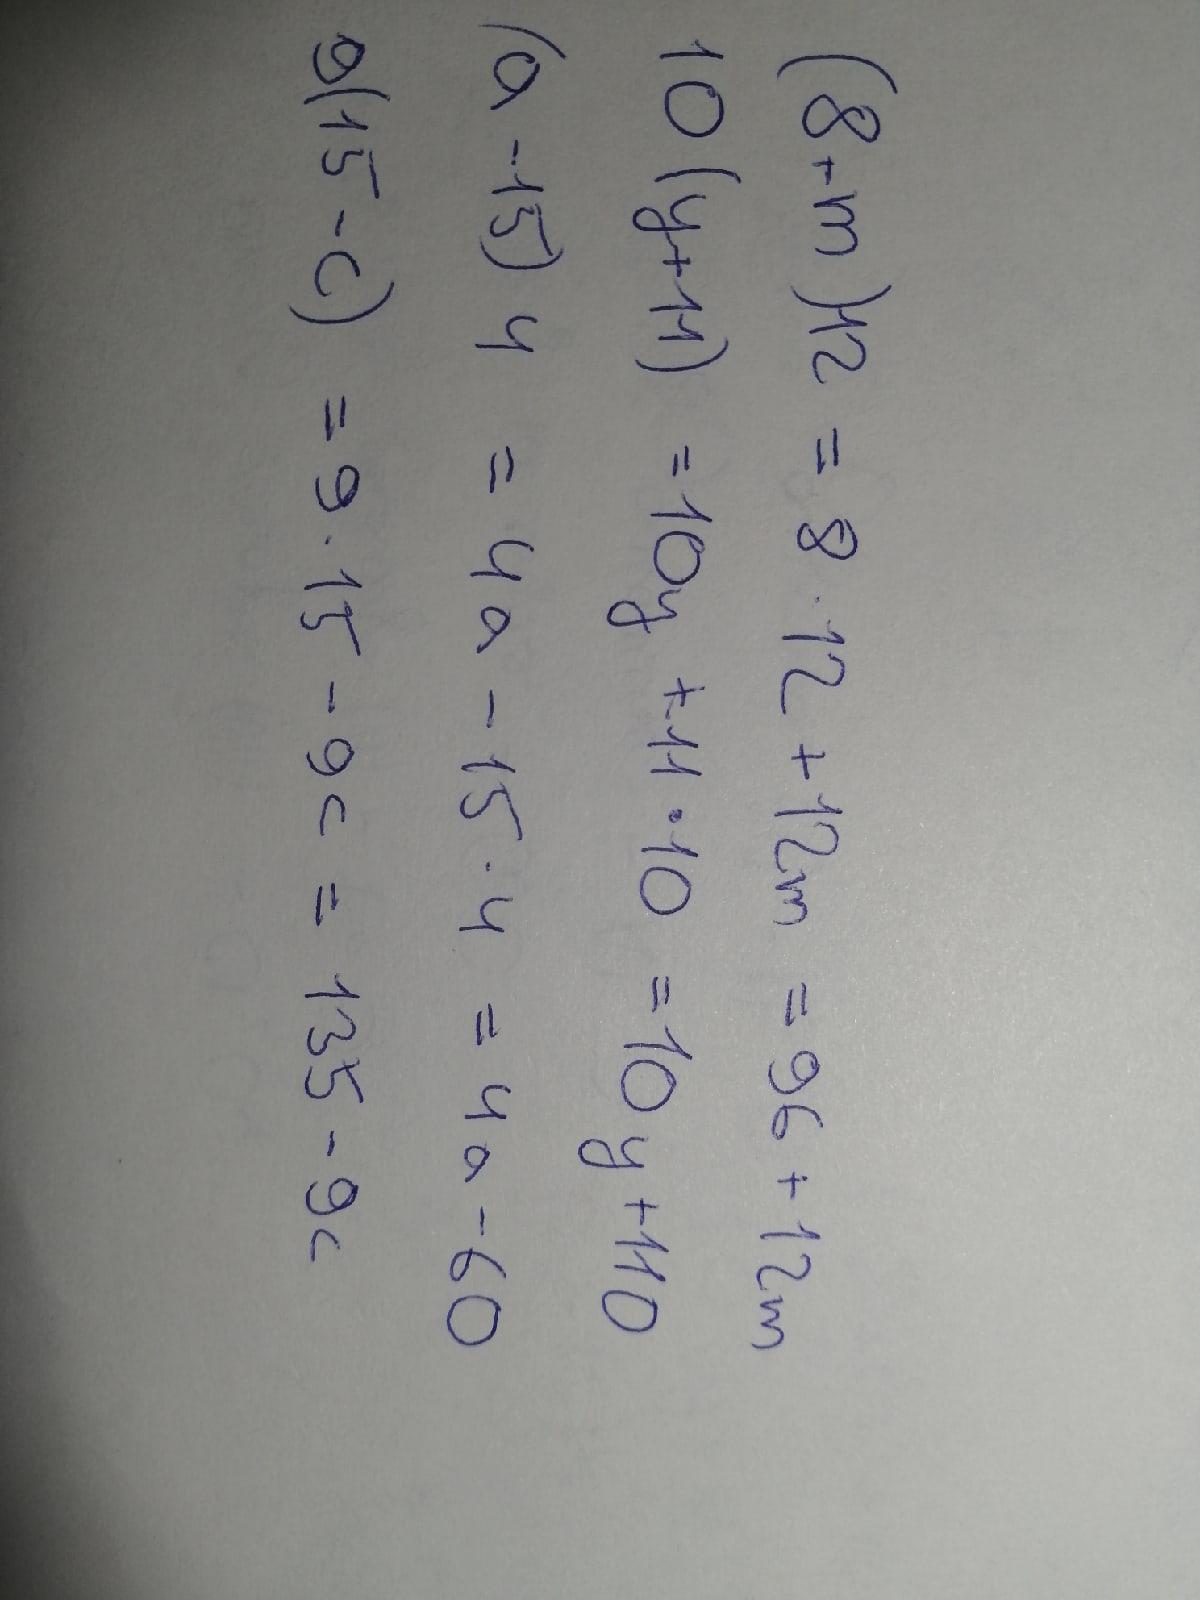 (8+m)12 = 8·12+12m = 96+12m
10(y+11) = 10y+11·10 = 10y+110
(a-15)4 = 4a-15·4 = 4a-60
9(15-c) = 9·15-9c = 135-9c